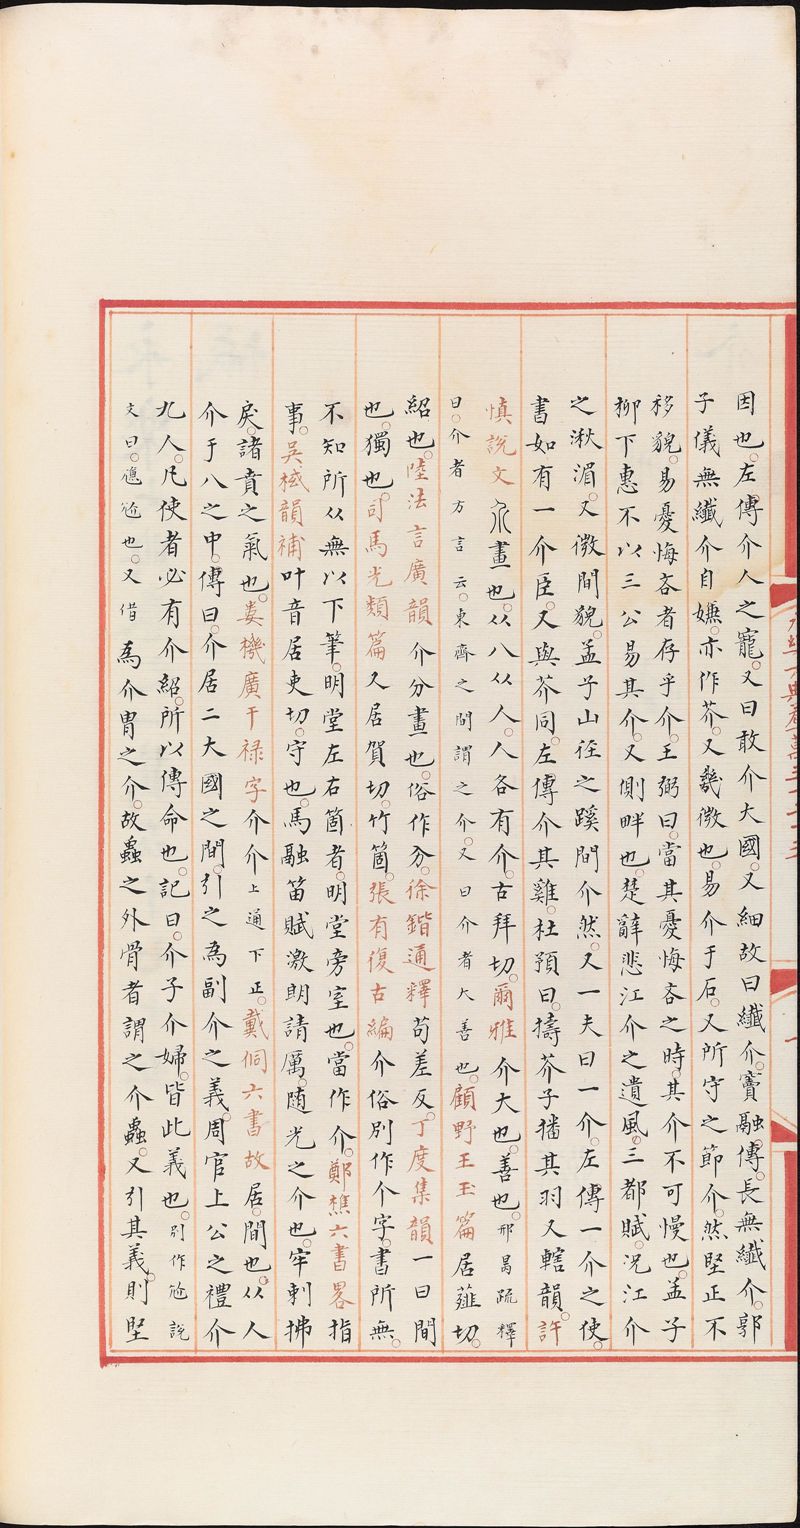 因也。左傳介人之寵。又曰敢介大國。又細故曰纖介。竇融傳。長無纖介。郭
子儀無纖介自嫌。亦作芥。又㡬微也。易介于石。又所守之節介。然堅正不
移貌。易憂悔吝者存乎介。王弼曰。當其憂悔吝之時。其介不可慢也。孟子
柳下惠不以三公易其介。又側畔也。楚辭悲江介之遺風。三都賦。况江介
之湫湄。又微間貌。孟子山徑之蹊間介然。又一夫曰一介。左傳一介之使。
書如有一介臣。又與芥同。左傳介其雞。杜預曰。擣芥子播其羽又轄韻。許
慎說文 畫也。从八从人。人各有介。古拜切。爾雅介大也。善也。邢昺疏釋
曰。介者方言云。東齊之間謂之介。又曰介者大善也。顧野王玉篇居薤切。
紹也。陸法言廣韻介分畫也。俗作分。徐鍇通釋苟差反。丁度集韻一曰間
也。獨也。司馬光類篇又居賀切。竹箇。張有復古編介俗別作个字。書所無。
不知所从無以下筆。明堂左右箇者。明堂旁室也。當作介。鄭樵六書畧指
事。吳棫韻補叶音居吏切。守也。馬融笛賦激朗請厲。随光之介也。牢剌拂
戾。諸賁之氣也。婁機廣干禄字介介上通下正。戴侗六書故居。間也。从人
介于八之中。傳曰。介居二大國之間。引之為副介之義。周官上公之禮介
九人。凡使者必有介紹。所以傳命也。記曰。介子介婦。皆此義也。別作尬說
文曰。尲尬也。又借為介冑之介。故蟲之外骨者謂之介蟲。又引其義。則堅